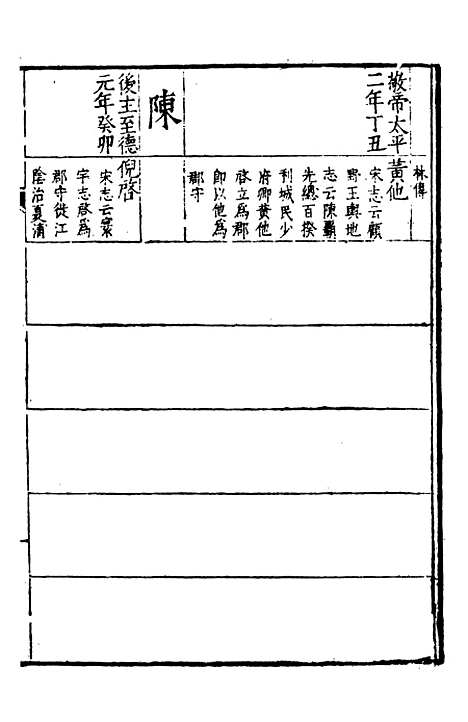 林傳
敬帝太平
二年丁丑
黃他
宋志云顧
野王輿地
志云陳霸
先總百揆
刋城民少
府卿黄他
啓立爲郡
卽以他爲
郡守
陳
後主至德
元年癸卯
倪啓
宋志云寀
宇志啓爲
郡守徙江
陰治夏浦